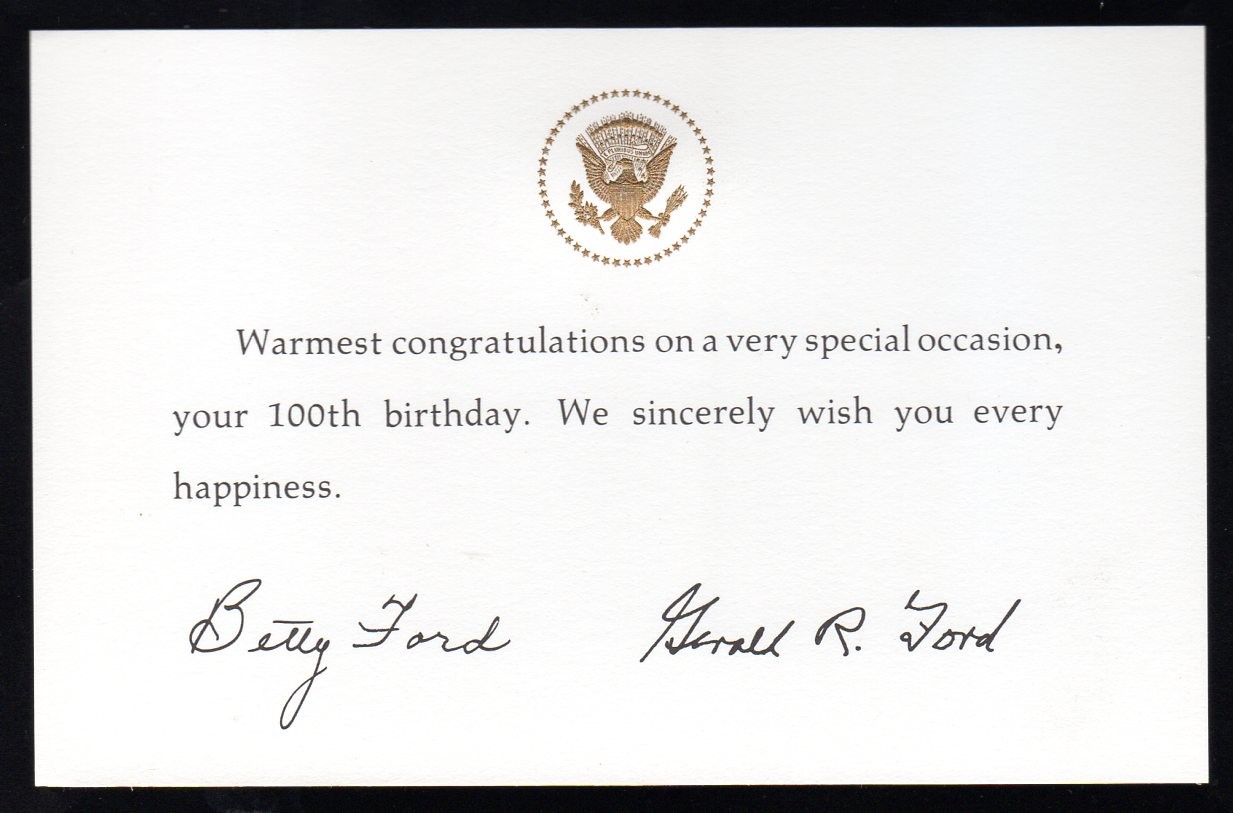 E PLURIBUS UNUM
Warmest congratulations on a very special occasion,
your 100th birthday. We sincerely wish you every
happiness.
Betty Ford Gerald R. Ford